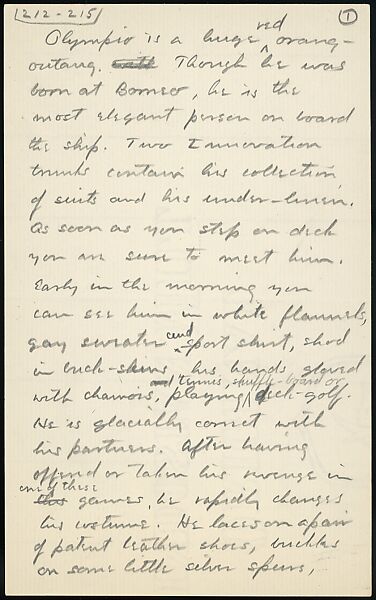 212-215
1
Olympio is a huge red orang-
outang. Though he was
born at Borneo, he is the
most elegant person on board
the ship. Two Innovation
trunks contain his collection
of suits and his under-linen.
As soon as you step on deck
you are sure to meet him.
Early in the morning you
can see him in white flannels,
gay sweater and sport shirt, shod
in buck-skins, his hands gloved
with chamois, playing and tennis, shuffle-board or deck-golf.
He is glacially correct with
his partners. After having
offered or taken his revenge in
one of these games, he rapidly changes
his costume. He laces on a pair
of patent leather shoes, buckles
on some little silver spurs,